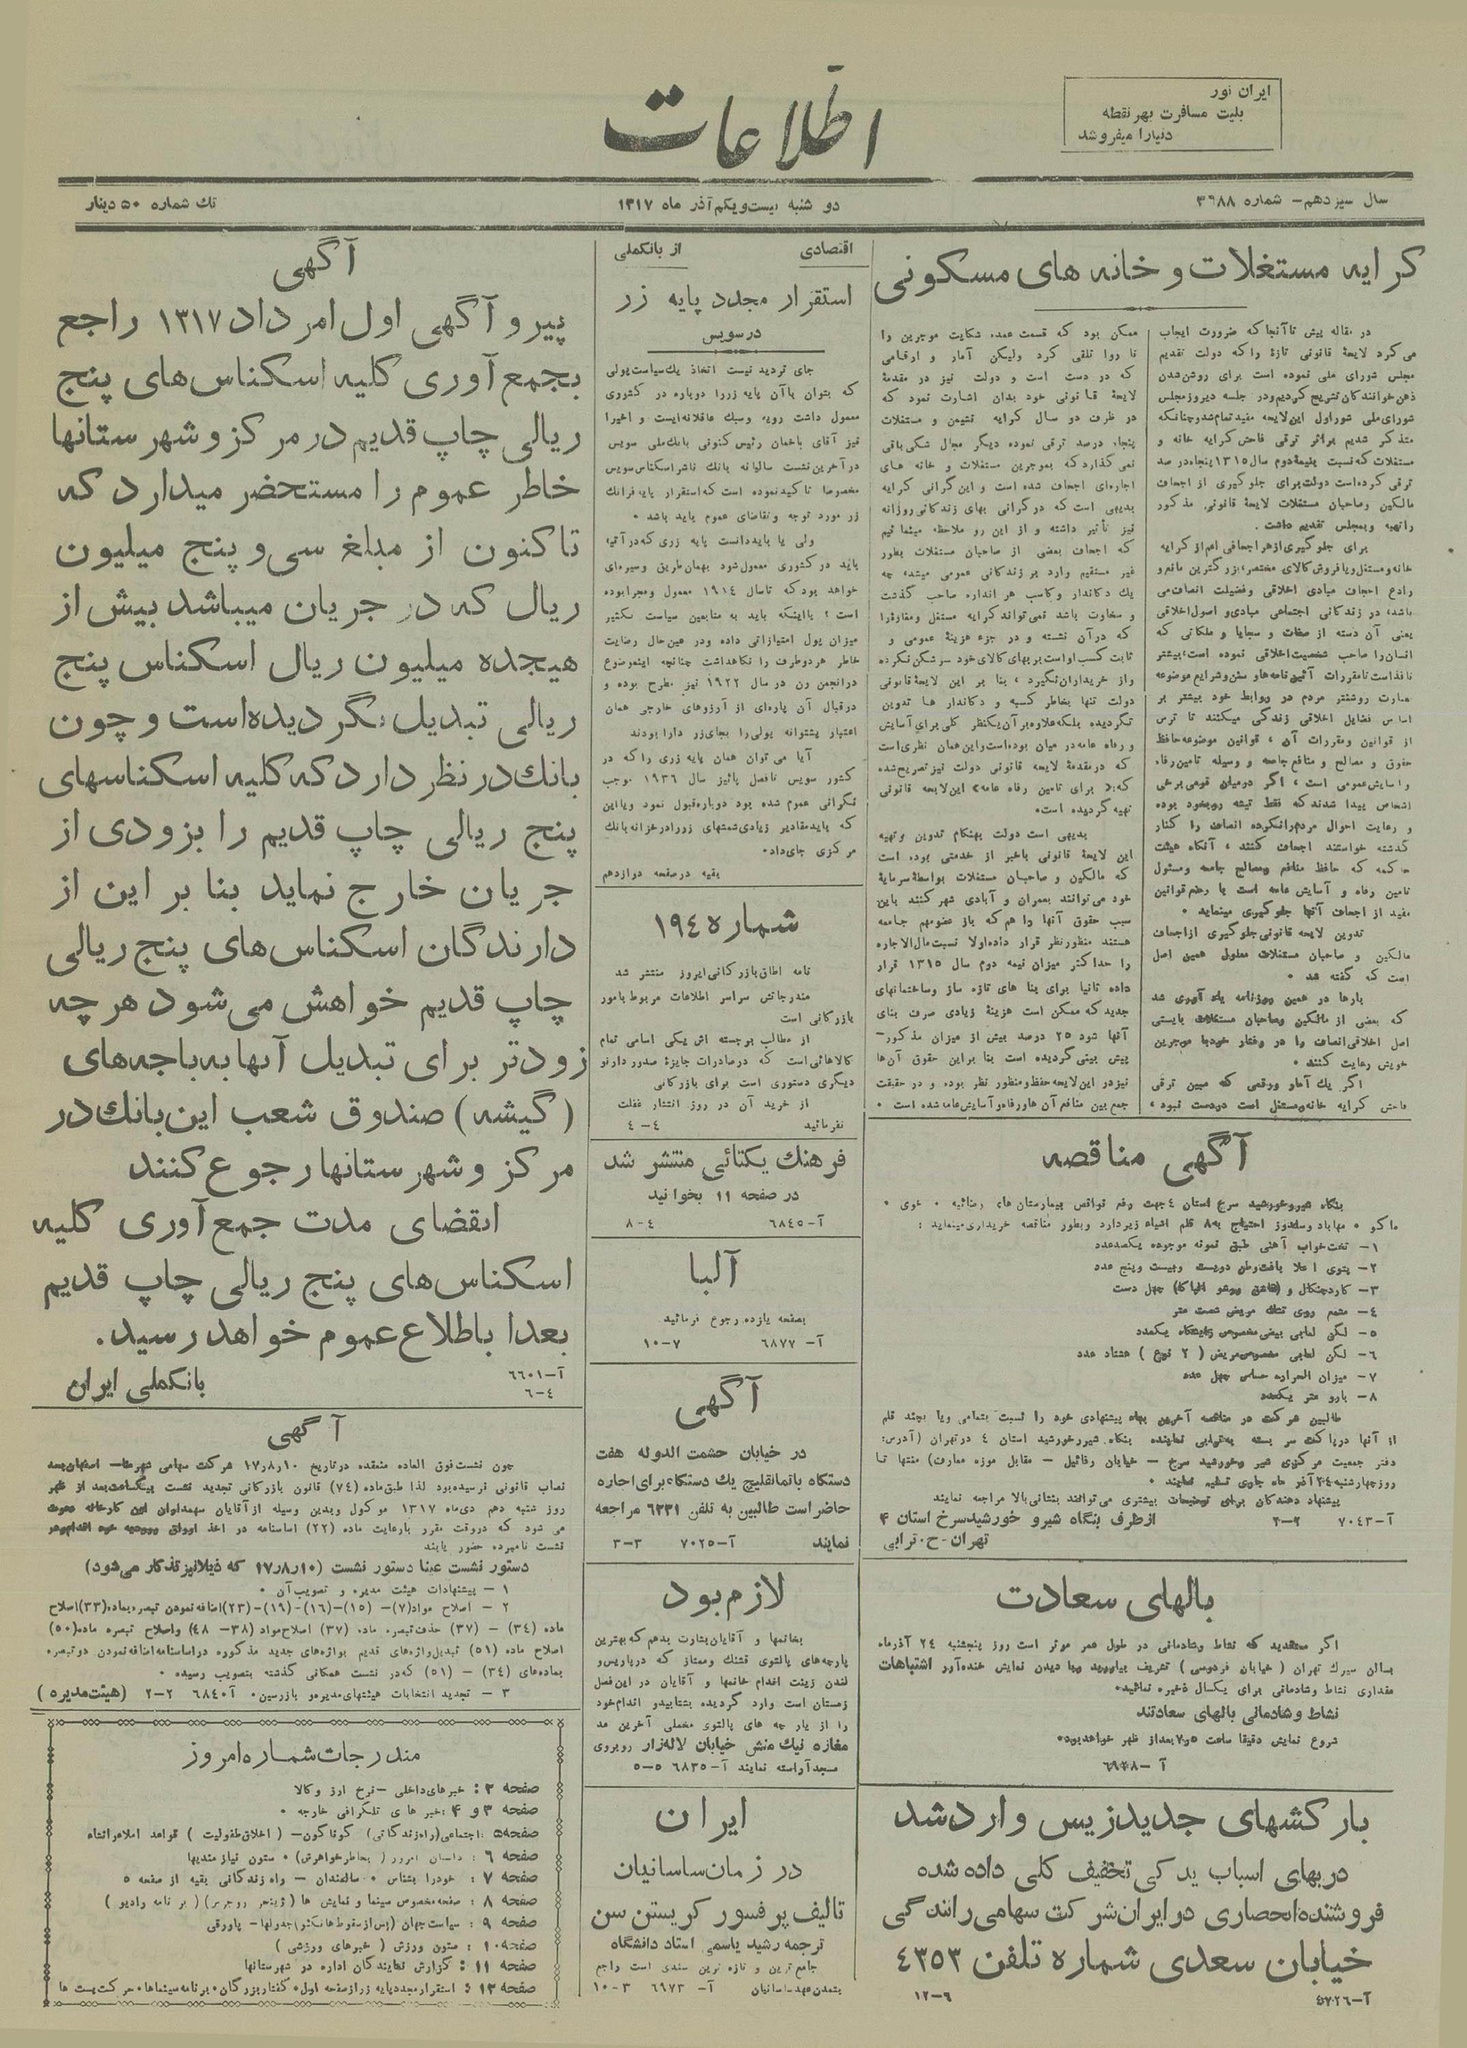 ایران تور
بلیت مسافرت بهر نقطه
دنیا را میفروشد
اطلاعات
سال سیزدهم - شماره ۳۶۸۸
دو شنبه بیست و یکم آذر ماه ۱۳۱۷
تك شماره ۵۰ دینار
کرایه مستغلات و خانه های مسکونی
در مقاله پیش تا آنجا که ضرورت ایجاب
می کرد لایحه قانونی تازه را که دولت تقدیم
مجلس شورای ملی نموده است برای روشن شدن
ذهن خوانندگان تشریح کردیم و در جلسه دیروز مجلس
شورای ملی شور اول این لایحه مفید تمام شد و چنانکه
متذکر شدیم براثر ترقی فاحش کرایه خانه و
مستغلات که نسبت بنیمه دوم سال ۱۳۱۵ پنجاه در صد
ترقی کرده است دولت برای جلو گیری از اجحاف
مالکین و صاحبان مستغلات لایحه قانونی مذکور
را تهیه و بمجلس تقدیم داشت.
برای جلو گیری از هر اجحافی اعم از کرایه
خانه و مستغل و یا فروش کالای مختصر، بزرگترین مانع و
رادع اجحاف مبادی اخلاقی و فضیلت انصاف می
باشد، در زندگانی اجتماعی مبادی و اصول اخلاقی
یعنی آن دسته از صفات و سجایا و ملکاتی که
انسان را صاحب شخصیت اخلاقی نموده است، بیشتر
نافذ است تا مقررات آئین نامه ها و سنن و شرایع موضوعه
عبارت روشنتر مردم در روابط خود بیشتر بر
اساس فضایل اخلاقی زندگی میکنند تا ترس
از قوانین و مقررات آن ، قوانین موضوعه حافظ
حقوق و مصالح و منافع جامعه و وسیله تامین رفاه
و آسایش عمومی است ، اگر درمیان قومی برخی
اشخاص پیدا شدند که فقط تیشه رو بخود بوده
و رعایت احوال مردم را نکرده انصاف را کنار
گذشته خواستند اجحاف کنند ، آنگاه هیئت
حاکمه که حافظ منافع و مصالح جامعه و مسئول
تامین رفاه و آسایش عامه است با وضع قوانین
مفید از اجحاف آنها جلو گیری مینماید .
تدوین لایحه قانونی جلو گیری از اجحاف
مالکین و صاحبان مستغلات معلول همین اصل
است که گفته شد .
بارها در همین روزنامه یاد آوری شد
که بعضی از مالکین و صاحبان مستغلات بایستی
اصل اخلاقی انصاف را در رفتار خود با موجرین
خویش رعایت کنند .
اگر یك آمار و رقمی که مبین ترقی
فاحش کرایه خانه و مستغل است در دست نبود ،
ممکن بود که قسمت عمده شکایت موجرین را
نا روا تلقی کرد ولیکن آمار و ارقامی
که در دست است و دولت نیز در مقدمه
لایحه قانونی خود بدان اشارت نمود که
در ظرف دو سال کرایه نشیمن و مستغلات
پنجاه درصد ترقی نموده دیگر مجال شکی باقی
نمی گذارد که بموجرین مستغلات و خانه های
اجاره ای اجحاف شده است و این گرانی کرایه
بدیهی است که در گرانی بهای زندگانی روزانه
نیز تأثیر داشته و از این رو ملاحظه مینمائیم
که اجحاف بعضی از صاحبان مستغلات بطور
غیر مستقیم وارد بر زندگانی عمومی میشد، چه
یك دکاندار و کاسب هر اندازه صاحب گذشت
و سخاوت باشد نمی تواند کرایه مستغل و مغازه را
که درآن نشسته و در جزء هزینه عمومی و
ثابت کسب او است بر بهای کالای خود سرشکن نکرده
و از خریداران نگیرد ، بنا بر این لایحه قانونی
دولت تنها بخاطر کسبه و دکاندار ها تدوین
نگردیده بلکه علاوه بر آن یکنظر کلی برای آسایش
و رفاه عامه در میان بوده است و این همان نظری است
که در مقدمه لایحه قانونی دولت نیز تصریح شده
که « برای تامین رفاه عامه » این لایحه قانونی
تهیه گردیده است.
بدیهی است دولت بهنگام تدوین و تهیه
این لایحه قانونی باخبر از خدمتی بوده است
که مالکین و صاحبان مستغلات بواسطه سرمایه
خود می توانند بعمران و آبادی شهر کنند باین
سبب حقوق آنها را هم که باز عضو مهم جامعه
هستند منظور نظر قرار داده اولا نسبت مال الاجاره
را حداکثر میزان نیمه دوم سال ۱۳۱۵ قرار
داده ثانیا برای بنا های تازه ساز و ساختمانهای
جدید که ممکن است هزینه زیادی صرف بنای
آنها شود ۲۵ درصد بیش از میزان مذکور
پیش بینی گردیده است بنا براین حقوق آن ها
نیز در این لایحه حفظ و منظور نظر بوده و در حقیقت
جمع بین منافع آن ها و رفاه و آسایش عامه شده است .
آگهی مناقصه
بنگاه شیر و خورشید سرخ استان ۴ جهت رفع نواقص بیمارستان های رضائیه . خوی .
ماکو . مهاباد و سلدوز احتیاج به ۸ قلم اشیاء زیر دارد و بطور مناقصه خریداری مینماید :
۱- تخت خواب آهنی طبق نمونه موجوده یکصد عدد
۲- پتوی اعلا بافت وطن دویست و بیست و پنج عدد
۳- کارد چنگال و
۴- مشمع روی تشك مریض شصت متر
۵- لگن لعابی
۶- لگن لعابی مخصوص مریض ( ۲ نوع ) هشتاد عدد
۷- میزان الحراره حساس چهل عدد
۸- بارو متر یکعدد
طالبین شرکت در مناقصه آخرین بهاء پیشنهادی خود را نسبت بتمامی و یا بچند قلم
از آنها در پاکت سر بسته به نماینده بنگاه شیر و خورشید استان ۴ در تهران (آدرس:
دفتر جمعیت مرکزی شیر و خورشید سرخ - خیابان رفائیل - مقابل موزه معارف) منتها تا
روز چهارشنبه ۲۴ آذر ماه جاری تسلیم نمایند .
پیشنهاد دهندگان برای توضیحات بیشتری می توانند بنشانی بالا مراجعه نمایند
آ-۷۰۴۳ ۲-۲ از طرف بنگاه شیر و خورشید سرخ استان ۴
تهران - ح. ترابی
بالهای سعادت
اگر معتقدید که نشاط و شادمانی در طول عمر موثر است روز پنجشنبه ۲۴ آذرماه
بسالن سیرك تهران ( خیابان فردوسی ) تشریف بیاورید و با دیدن نمایش خنده آور اشتباهات
مقداری نشاط و شادمانی برای یکسال ذخیره نمائید.
نشاط و شادمانی بالهای سعادتند
شروع نمایش دقیقا ساعت ۷٫۵ بعد از ظهر خواهد بود.
آ-۶۹۳۸
بار کشهای جدید زیس وارد شد
در بهای اسباب یدکی تخفیف کلی داده شده
فروشنده انحصاری در ایران شرکت سهامی رانندگی
خیابان سعدی شماره تلفن ۴۳۵۳
آ-۵۷۲۶ ۹-۱۲
اقتصادی از بانك ملی
استقرار مجدد پایه زر
در سویس
جای تردید نیست اتخاذ یك سیاست پولی
که بتوان با آن پایه زر را دوباره در کشوری
معمول داشت رویه و سبك عاقلانه ایست و اخیرا
نیز آقای باخمان رئیس کنونی بانك ملی سویس
در آخرین نشست سالیانه بانك ناشر اسکناس سویس
مخصوصا تاکید نموده است که استقرار پایه فرانك
زر مورد توجه و تقاضای عموم باید باشد .
ولی یا باید دانست پایه زری که در آتیه
باید در کشوری معمول شود بهمان طریق و سیره ای
خواهد بود که تا سال ۱۹۱۴ معمول و مجرا بوده
است ؛ یا اینکه باید به متابعین سیاست تکثیر
میزان پول امتیازاتی داده و در عین حال رضایت
خاطر هر دو طرف را نگاهداشت چنانچه اینموضوع
در انجمن ژن در سال ۱۹۲۲ نیز مطرح بوده و
درقبال آن پاره ای از آرزوهای خارجی همان
اعتبار پشتوانه پولی را بجای زر دارا بودند
آیا می توان همان پایه زری را که در
کشور سویس تا فصل پائیز سال ۱۹۳۶ موجب
نگرانی عموم شده بود دوباره قبول نمود و یا این
که باید مقادیر زیادی شمشهای زر را در خزانه بانك
مرکزی جای داد.
بقیه در صفحه دوازدهم
شماره ۱۹۴
نامه اطاق بازرگانی امروز منتشر شد
مندرجاتش سراسر اطلاعات مربوط بامور
بازرگانی است
از مطالب برجسته اش یکی اسامی تمام
کالاهائی است که در صادرات جایزه صدور دارند و
دیگری دستوری است برای بازرگانی
از خرید آن در روز انتشار غفلت
نفرمائید ۴-۴
فرهنك یکتائی منتشر شد
در صفحه ۱۱ بخوانید
آ-۶۸۴۵ ۴-۸
آلبا
بصفحه یازده رجوع فرمائید
آ- ۶۸۷۷ ۷-۱۰
آگهی
در خیابان حشمت الدوله هفت
دستگاه با تمانقلیچ یك دستگاه برای اجاره
حاضر است طالبین به تلفن ۶۲۳۱ مراجعه
نمایند آ-۷۰۲۵ ۳-۳
لازم بود
بخانمها و آقایان بشارت بدهم که بهترین
پارچه های پالتوی قشنك و ممتاز که در پاریس و
لندن زینت اندام خانمها و آقایان در این فصل
زمستان است وارد گردیده بشتابید و اندام خود
را از پارچه های پالتوی مخملی آخرین مد
مغازه نیك منش خیابان لاله زار روبروی
مسجد آراسته نمایند آ-۶۸۳۵ ۵-۵
ایران
در زمان ساسانیان
تالیف پرفسور کریستن سن
ترجمه رشید یاسمی استاد دانشگاه
جامع ترین و تازه ترین سندی است راجع
بتمدن عهد ساسانیان آ- ۶۹۷۳ ۳-۱۰
آگهی
پیرو آگهی اول امرداد ۱۳۱۷ راجع
بجمع آوری کلیه اسکناس های پنج
ریالی چاپ قدیم در مرکز و شهرستانها
خاطر عموم را مستحضر میدارد که
تاکنون از مبلغ سی و پنج میلیون
ریال که در جریان میباشد بیش از
هیجده میلیون ریال اسکناس پنج
ریالی تبدیل گردیده است و چون
بانك در نظر دارد که کلیه اسکناسهای
پنج ریالی چاپ قدیم را بزودی از
جریان خارج نماید بنا بر این از
دارندگان اسکناس های پنج ریالی
چاپ قدیم خواهش می شود هر چه
زودتر برای تبدیل آنها به باجه های
(گیشه) صندوق شعب این بانك در
مرکز و شهرستانها رجوع کنند
انقضای مدت جمع آوری کلیه
اسکناس های پنج ریالی چاپ قدیم
بعدا باطلاع عموم خواهد رسید.
آ-۶۶۰۱ بانك ملی ایران
۴-۶
آگهی
چون نشست فوق العاده منعقده در تاریخ ۱۷٫۸٫۱۰ شرکت سهامی اصفهان بحد
نصاب قانونی نرسیده بود لذا طبق ماده (۷۴) قانون بازرگانی تجدید نشست بیکساعت بعد از ظهر
روز شنبه دهم دی ماه ۱۳۱۷ موکول و بدین وسیله از آقایان سهمداران این کارخانه دعوت
می شود که در وقت مقرر با رعایت ماده (۲۲) اساسنامه در اخذ اوراق ورودیه خود اقدام و در
نشست نامبرده حضور یابند
دستور نشست عینا دستور نشست (۱۷٫۸٫۱۰ که ذیلا نیز تذکار می شود)
۱ - پیشنهادات هیئت مدیره و تصویب آن .
۲ - اصلاح مواد (۷)-(۱۵)-(۱۶)-(۱۹)-(۲۳) اضافه نمودن تبصره بماده (۳۳) اصلاح
ماده (۳۴) - (۳۷) حذف تبصره ماده (۳۷) اصلاح مواد (۳۸- ۴۸) و اصلاح تبصره ماده (۵۰)
اصلاح ماده (۵۱) تبدیل واژه های قدیم بواژه های جدید مذکوره در اساسنامه اضافه نمودن دو تبصره
بماده های (۳۴) - (۵۱) که در نشست همگانی گذشته بتصویب رسیده .
۳ - تجدید انتخابات هیئتهای مدیره و بازرسین . آ-۶۸۴۰ ۲-۲ (هیئت مدیره)
مندرجات شماره امروز
صفحه ۲ : خبرهای داخلی - نرخ ارز و کالا
صفحه ۳ و ۴ : خبر های تلگرافی خارجه .
صفحه ۵ : اجتماعی (راه زندگانی) گوناگون - ( اخلاق طفولیت ) قواعد املاء و انشاء
صفحه ۶ : داستان امروز ( بخاطر خواهرش) . ستون نیازمندیها
صفحه ۷ : خود را بشناس . سالمندان - راه زندگانی بقیه از صفحه ۵
صفحه ۸ : صفحه مخصوص سینما و نمایش ها (ژینجر روجرس) (برنامه رادیو )
صفحه ۹ : سیاست جهان (پس از سقوط هانکئو) جدولها - پاورقی
صفحه ۱۰ : ستون ورزش ( خبرهای ورزشی )
صفحه ۱۱ : گزارش نمایندگان اداره در شهرستانها
صفحه ۱۲ : استقرار مجدد پایه زر از صفحه اول . گفتار بزرگان . برنامه سینماها . حرکت پست ها